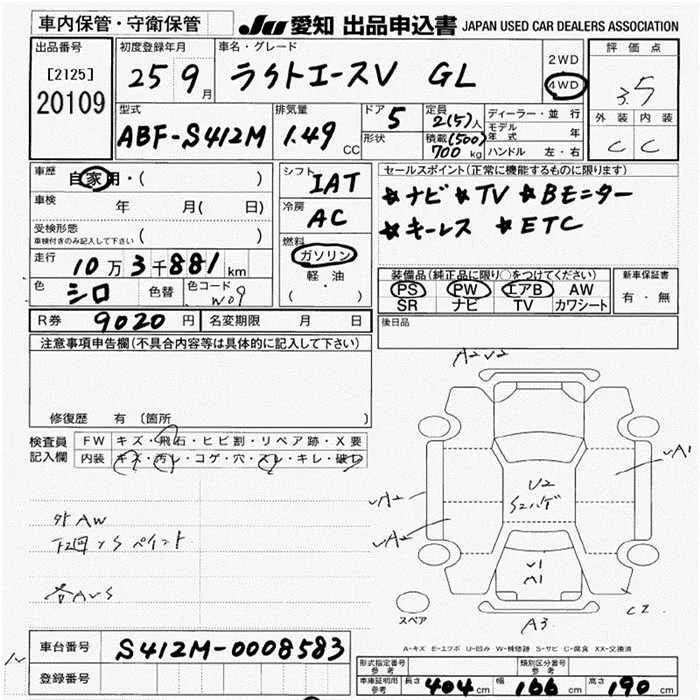 車内保管・守衛保管 JU 愛知 出品申込書 JAPAN USED CAR DEALERS ASSOCIATION
出品番号
[2125]
20109
初度登録年月
25 9月
車名・グレード
ライトエースV GL
2WD
4WD
評価点
3.5
外装 内装
C C
型式
ABF-S412M
排気量
1.49 CC
ドア 5
形状
定員 2(5)人
積載 (500)
700 kg
ディーラー・並行
モデル年式 年
ハンドル 左・右
車歴 自家用・( )
車検 年 月( 日)
受検形態
車検付きのみ記入して下さい ( )
走行 10万3千881km
色 シロ 色替 色コード W09
シフト IAT
冷房 AC
燃料
ガソリン
軽・油
( )
セールスポイント(正常に機能するものに限ります)
★ナビ ★TV ★Bモニター
★キーレス ★ETC
装備品(純正品に限り○をつけてください)
PS PW エアB AW
SR ナビ TV カワシート
新車保証書
有・無
後日品
R券 9020円 名変期限 月 日
注意事項申告欄(不具合内容等は具体的に記入して下さい)
修復歴 有〔箇所 〕
検査員記入欄
FW キズ・飛石・ヒビ割・リペア跡・X要
内装 キズ・汚レ・コゲ・穴・スレ・キレ・破レ
外AW
下回りS ペイント
各AUS
A2U2
UA1
UA2
UA2
U2
S2ハゲ
U1
A1
A3
C2
スペア
A-キズ E-エクボ U-凹み W-補修跡 S-サビ C-腐食 XX-交換済
車台番号 S412M-0008583
登録番号
形式指定番号 参考
類別区分番号 参考
車庫証明用 参考 長さ 404cm 幅 166cm 高さ 190cm